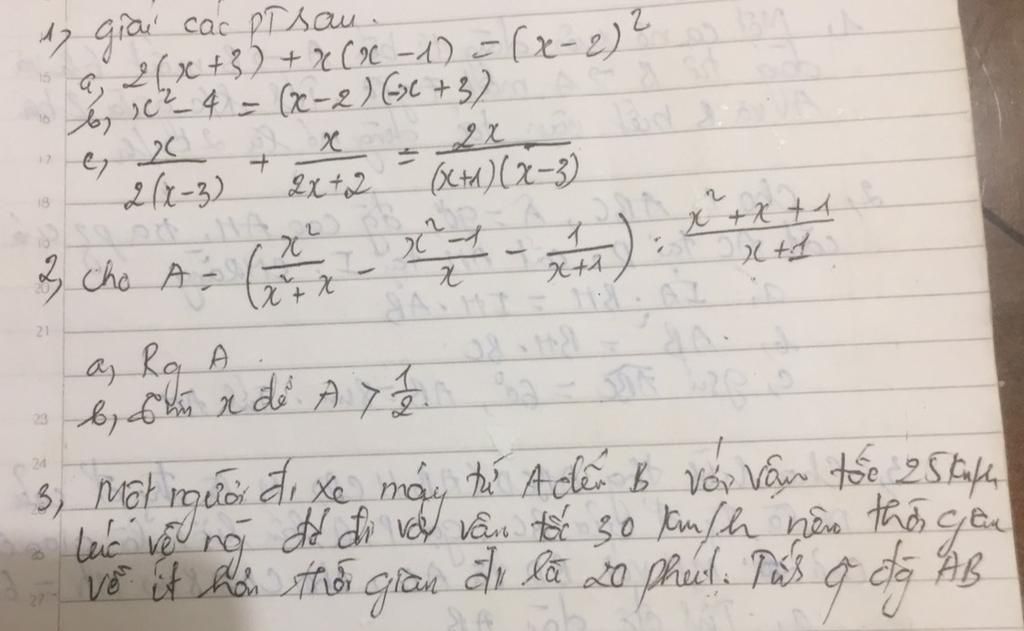 1, giải các PT sau.
a, 2(x+3) + x(x-1) = (x-2)²
b, x² - 4 = (x-2)(-x+3)
c, x/2(x-3) + x/2x+2 = 2x/(x+1)(x-3)
2, Cho A = (x²/x²+x - x²-1/x - 1/x+1) : x²+x+1/x+1
a, Rg A.
b, tìm x để A > 1/2.
3, Một người đi xe máy từ A đến B với vận tốc 25km/h
lúc về ng đó đi với vận tốc 30 km/h nên thời gian
về ít hơn thời gian đi là 20 phút. Tính q đg AB